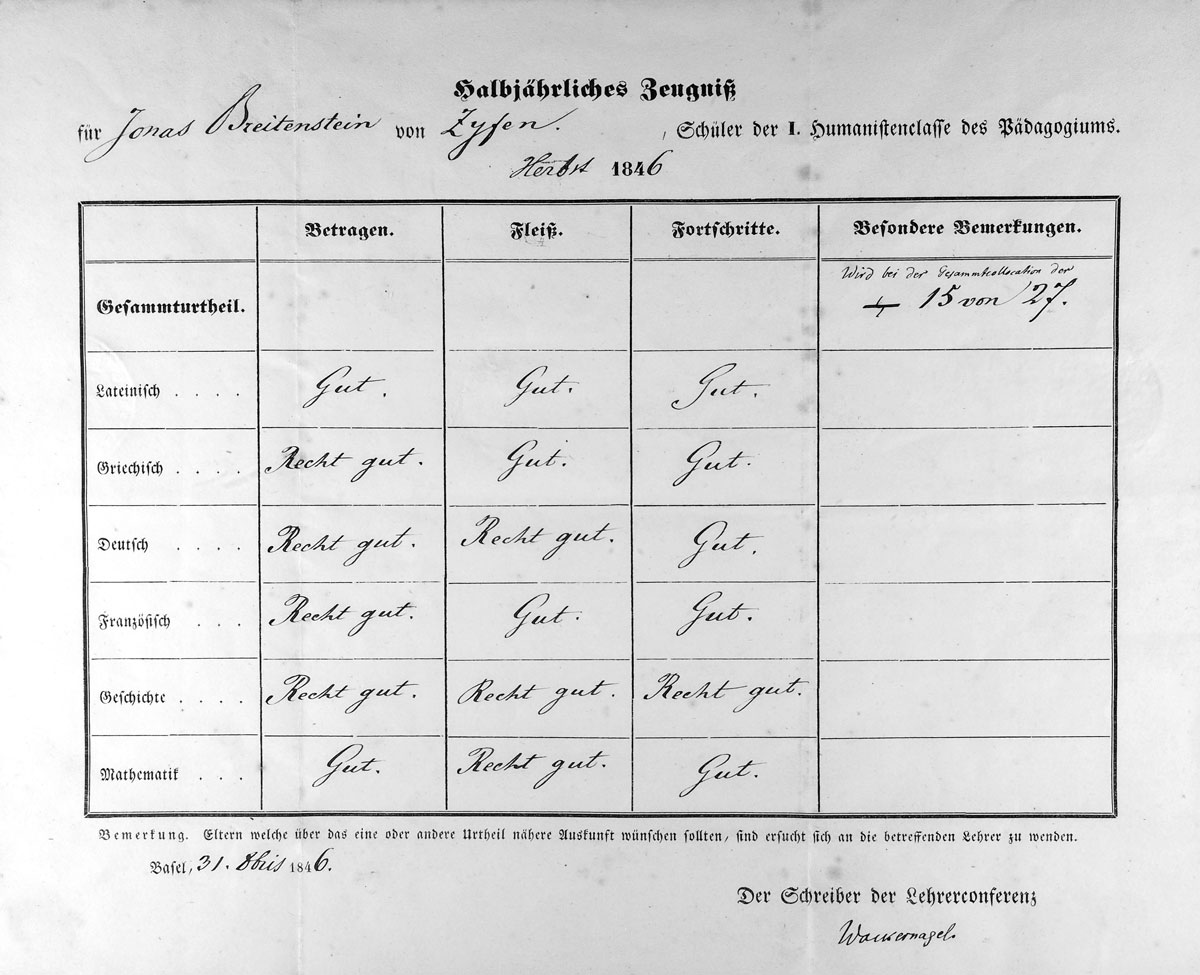 Halbjährliches Zeugniß
für Jonas Breitenstein von Zysen. , Schüler der I. Humanistenclasse des Pädagogiums.
Herbst 1846
Betragen. Fleiß. Fortschritte. Besondere Bemerkungen.
Wird bei der Gesammtcollocation der
Gesammturtheil. 15 von 27.
Lateinisch . . . . Gut. Gut. Gut.
Griechisch . . . . Recht gut. Gut. Gut.
Deutsch . . . . Recht gut. Recht gut. Gut.
Französisch . . . Recht gut. Gut. Gut.
Geschichte . . . . Recht gut. Recht gut. Recht gut.
Mathematik . . . Gut. Recht gut. Gut.
Bemerkung. Eltern welche über das eine oder andere Urtheil nähere Auskunft wünschen sollten, sind ersucht sich an die betreffenden Lehrer zu wenden.
Basel, 31. 8bris 1846.
Der Schreiber der Lehrerconferenz
Wackernagel.